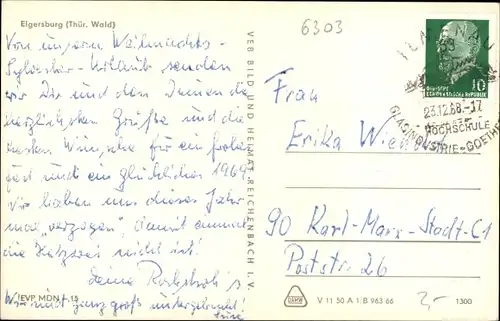 Elgersburg (Thür. Wald)
6303
Von unserm Weihnachts-
Sylvester-Urlaub senden
wir Dir und den Deinen die
herzlichsten Grüße und die
besten Wünsche für ein frohes
Fest und ein glückliches 1969.
Wir haben uns dieses Jahr
mal "verzogen", damit einmal
die Hetzerei nicht ist!
Deine
Wir sind ganz groß untergebracht!
EVP MDN 0,15
VEB BILD UND HEIMAT REICHENBACH I. V.
ILMENAU
10
23.12.68.-17
HOCHSCHULE
GLASINDUSTRIE-GOETHE
Frau
Erika
90 Karl-Marx-Stadt-C1
Poststr. 26
V 11 50 A 1/B 963 66
1300
2,-